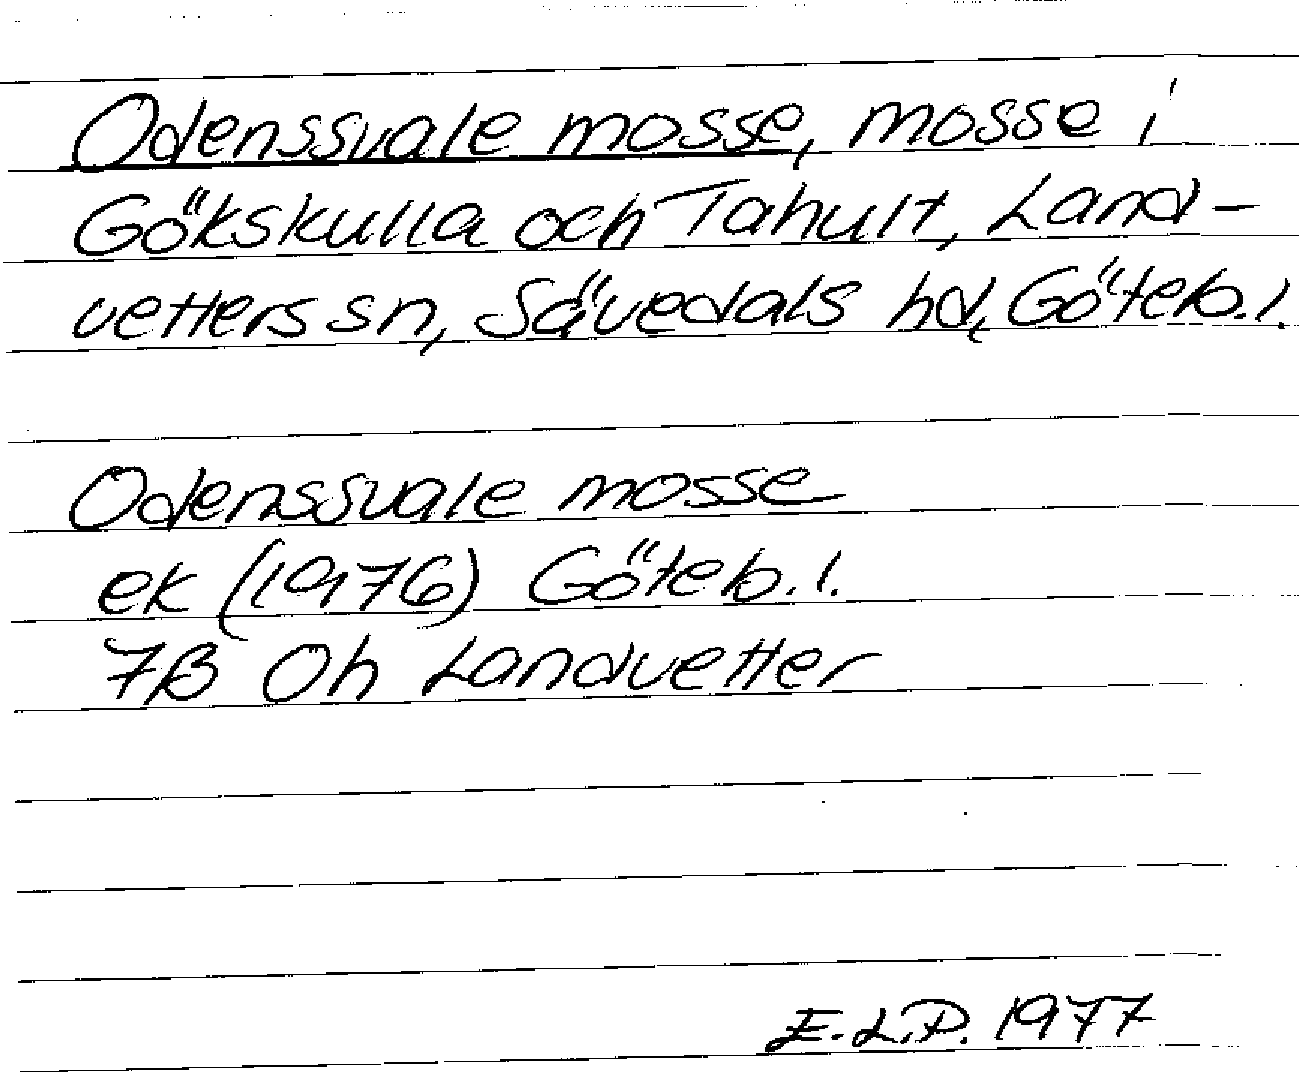 Odenssvale mosse, mosse i
Gökskulla och Tahult, Land-
vetters sn, Sävedals hd, Göteb. l.
Odenssvale mosse
ek (1976) Göteb. l.
7B 0h Landvetter
E.L.P. 1977